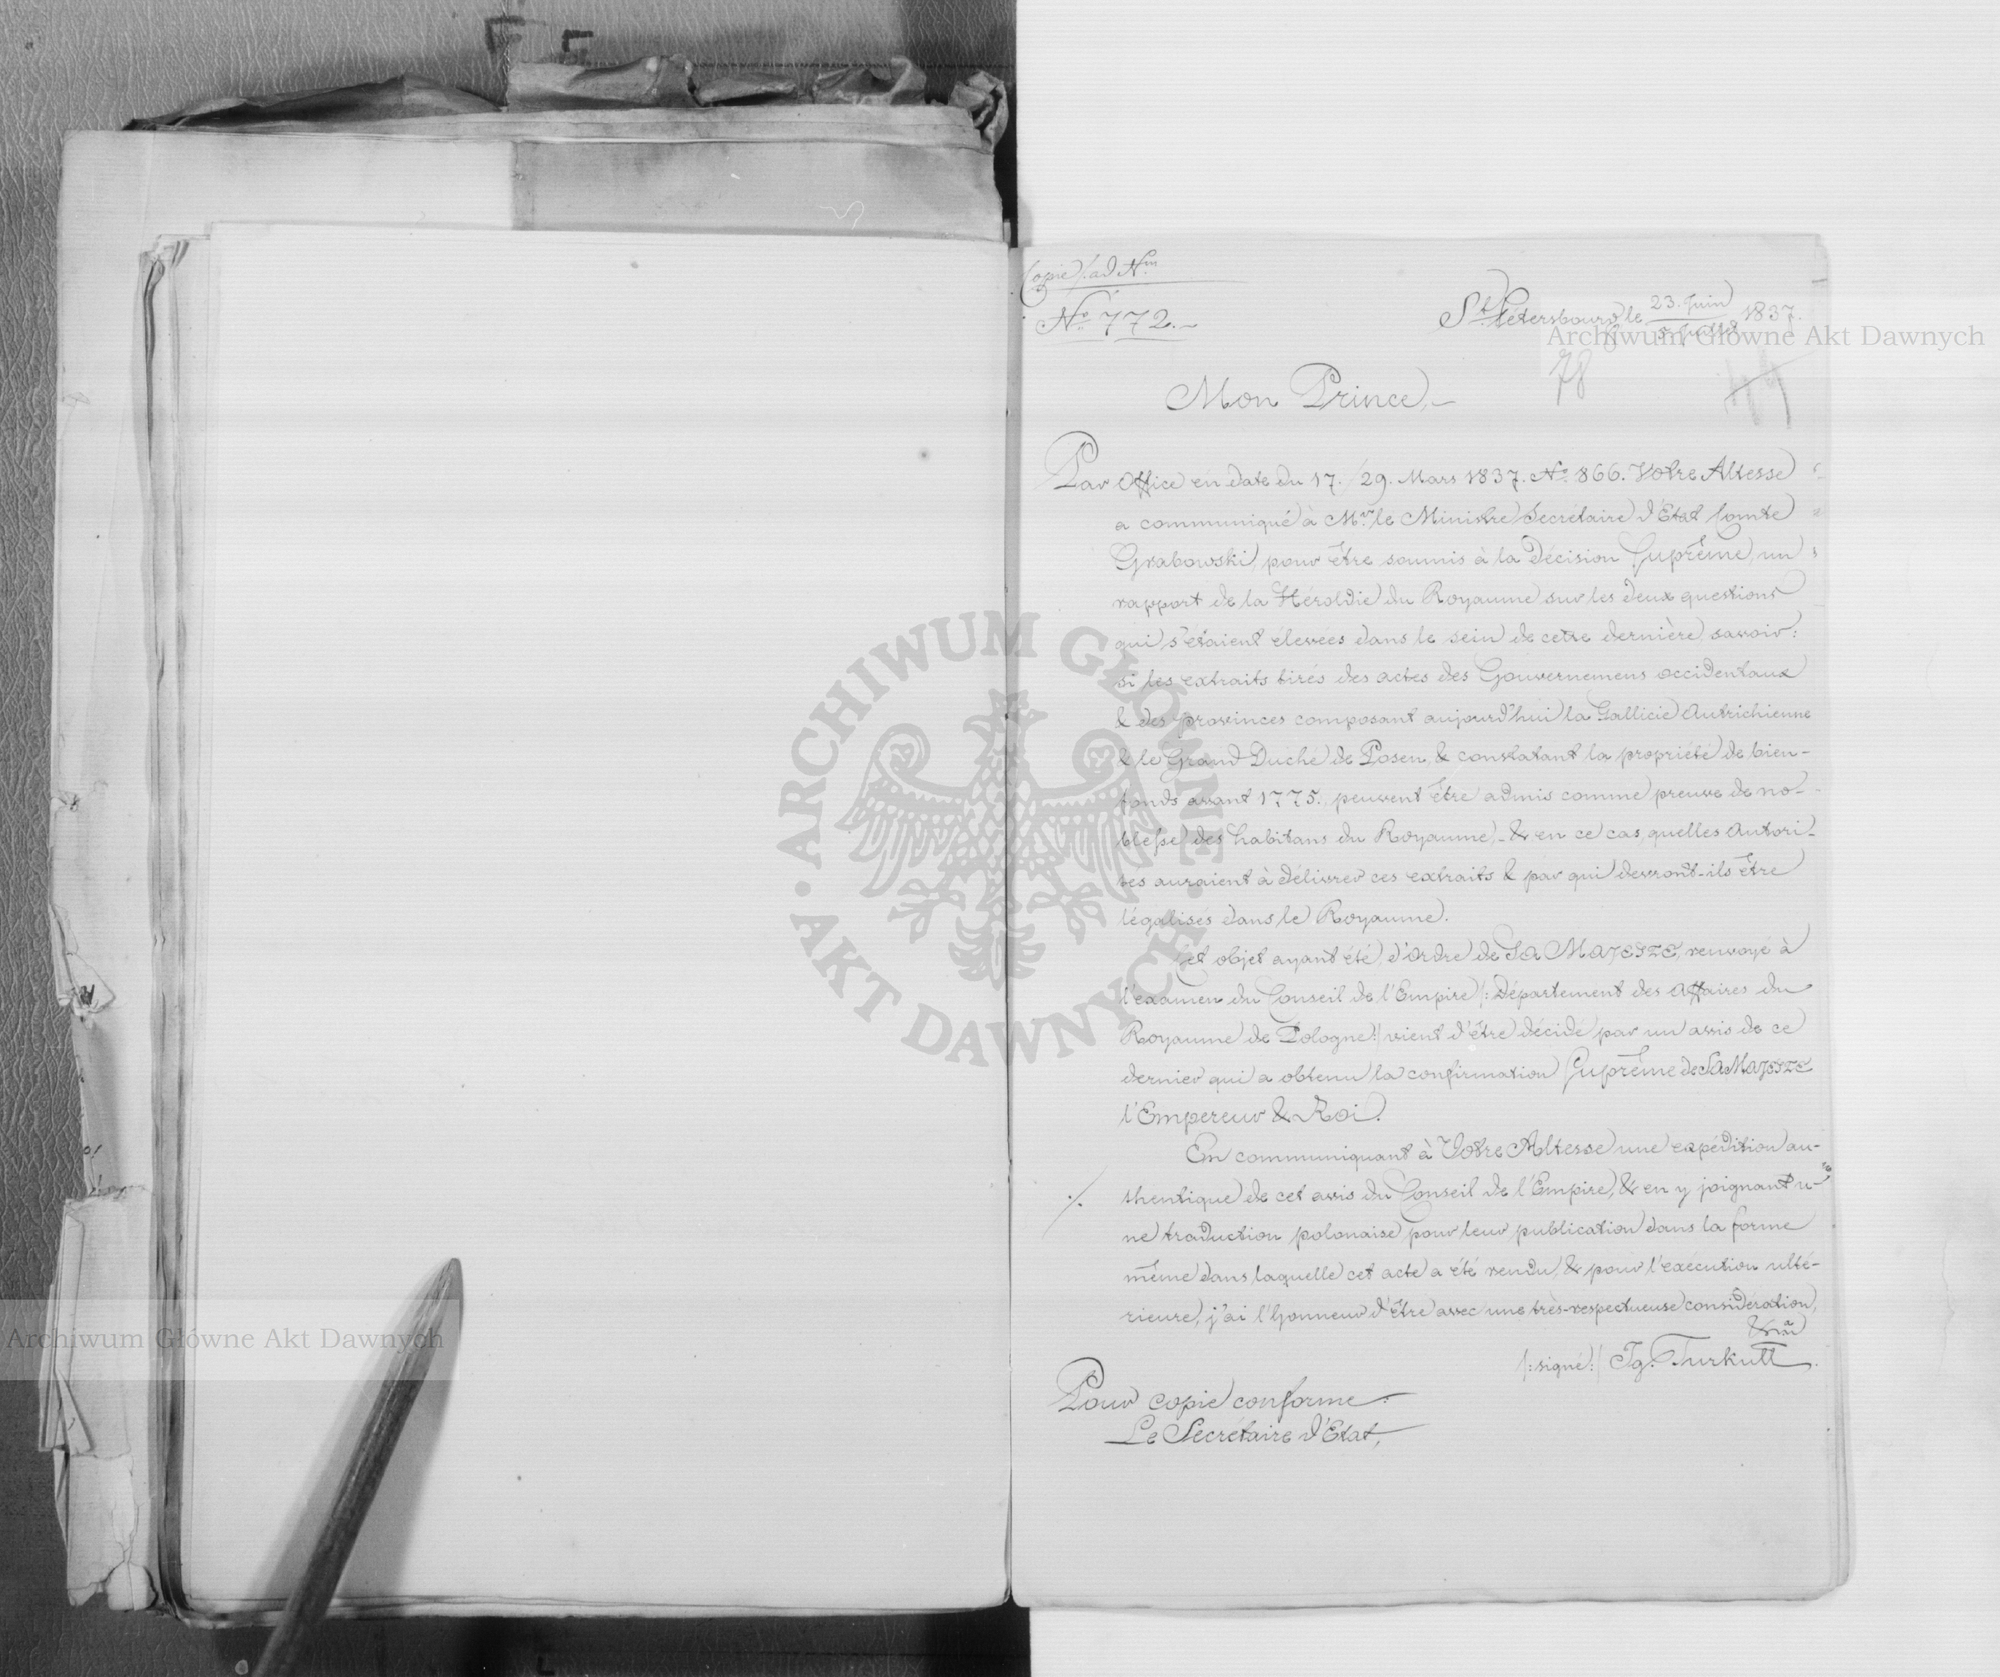 Copie /. ad N<sup>m</sup>
N<sup>o</sup> 772.
S<sup>t</sup> Pétersbourg le 23. Juin / 5 Juillet 1837.
78
Mon Prince,
Par office en date du 17./29. Mars 1837. N<sup>o</sup> 866. Votre Altesse
a communiqué à M<sup>r</sup> le Ministre Secrétaire d'Etat Comte
Grabowski, pour être soumis à la Décision Suprême, un
rapport de la Héroldie du Royaume sur les deux questions
qui s'étaient élevées dans le sein de cette dernière, savoir:
si les extraits tirés des actes des Gouvernemens occidentaux
& des provinces composant aujourd'hui la Gallicie Autrichienne
& le Grand Duché de Posen, & constatant la propriété de bien-
fonds avant 1775., peuvent être admis comme preuve de no-
blesse des habitans du Royaume, - & en ce cas, quelles Autori-
tes auraient à délivrer ces extraits & par qui devront-ils être
légalisés dans le Royaume.
Cet objet ayant été, d'ordre de SA MAJESTE, renvoyé à
l'examen du Conseil de l'Empire /: Département des affaires du
Royaume de Pologne :/ vient d'être décidé par un avis de ce
dernier qui a obtenu la confirmation Suprême de SA MAJESTE
l'Empereur & Roi.
En communiquant à Votre Altesse une expédition au-
thentique de cet avis du Conseil de l'Empire, & en y joignant u-
ne traduction polonaise pour leur publication dans la forme
même dans laquelle cet acte a été rendu, & pour l'exécution ulté-
rieure, j'ai l'honneur d'être avec une très-respectueuse considération,
/: signé :/ Ig. Turkull.
Pour copie conforme
Le Secrétaire d'Etat,
Archiwum Główne Akt Dawnych
Archiwum Główne Akt Dawnych
ARCHIWUM GŁÓWNE · AKT DAWNYCH ·